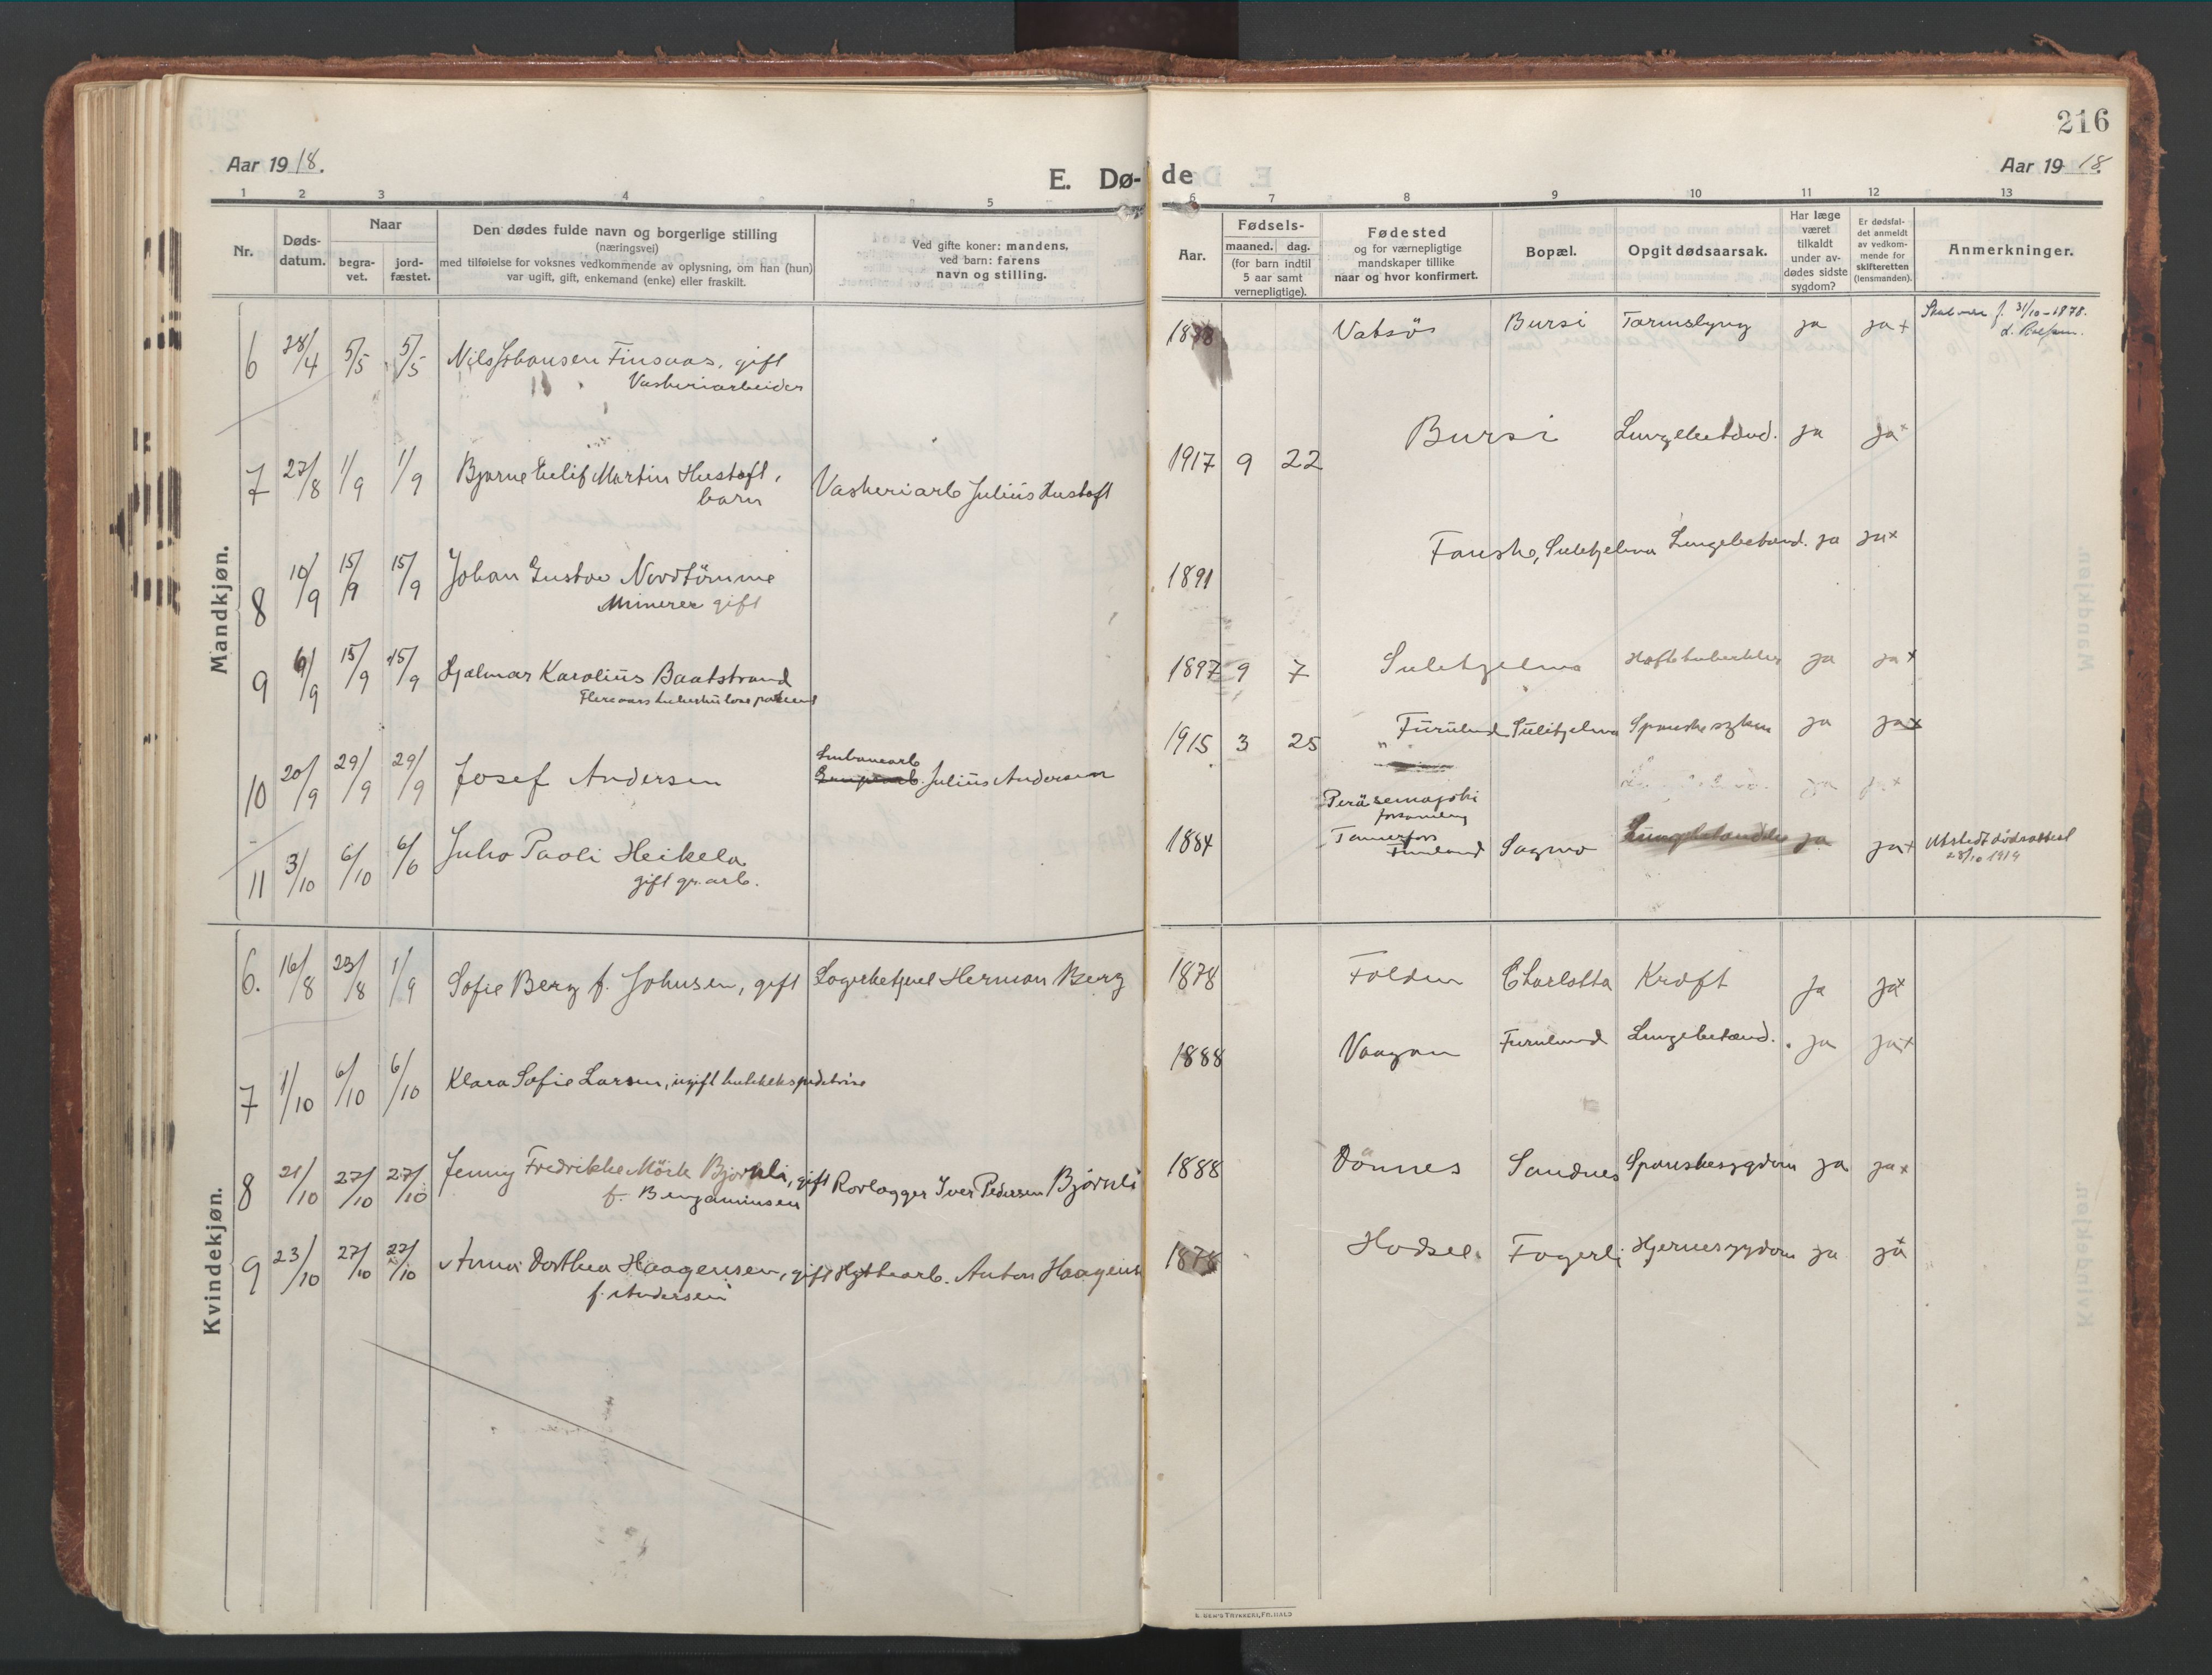 216
Aar 1918.
E. Dø-
de
Aar 1918.
1 2 3 4 5 6 7 8 9 10 11 12 13
Nr.
Døds-
datum.
Naar
begra-
vet.
jord-
fæstet.
Den dødes fulde navn og borgerlige stilling
(næringsvei)
med tilføielse for voksnes vedkommende av oplysning, om han (hun)
var ugift, gift, enkemand (enke) eller fraskilt.
Ved gifte koner: mandens,
ved barn: farens
navn og stilling.
Aar.
Fødsels-
maaned. dag.
(for barn indtil
5 aar samt
vernepligtige).
Fødested
og for værnepligtige
mandskaper tillike
naar og hvor konfirmert.
Bopæl.
Opgit dødsaarsak.
Har læge
været
tilkaldt
under av-
dødes sidste
sygdom?
Er dødsfal-
det anmeldt
av vedkom-
mende for
skifteretten
(lensmanden).
Anmerkninger.
Mandkjøn.
6 28/4 5/5 5/5 Nils Johansen Finsaas, gift
Vaskeriarbeider
1878 Vatsös Bursi Tarmslyng ja ja+
f. 31/10-1878.
7 27/8 1/9 1/9 Bjarne Eilif Martin Hustoft,
barn
Vaskeriarb Julius Hustoft
1917 9 22 Bursi Lungebetænd. ja ja+
8 10/9 15/9 15/9 Johan Gustav Nordtömme
Minerer gift
1891 Fauske, Sulitjelma Lungebetænd. ja ja+
9 9/9 15/9 15/9 Hjalmar Karolius Baatstrand
Fleraars tuberkulose patient
1897 9 7 Sulitjelma Hoftetuberkler ja ja+
10 20/9 29/9 29/9 Josef Andersen
Linbanearb
Julius Andersen
1915 3 25 Furulund Sulitjelma Spanske sykem ja ja+
11 3/10 6/10 6/6 Juho Paoli Heikela
gift gr.arb.
1884 Peräsemajoki
forsamling
Tammerfors
Finland
Sagmo Lungebetændelse ja ja+ Utstedt dødsattest
28/10 1919
Kvindekjøn.
6. 16/8 23/8 1/9 Sofie Berg f. Johnsen, gift Herman Berg
1878 Folden Charlotta Kræft ja ja+
7 1/10 6/10 6/10 Klara Sofie Larsen, ugift butikekspeditrise
1888 Vaagan Furulund Lungebetænd. ja ja+
8 21/10 27/10 27/10 Jenny Fredrikke Mörk Bjørnli, gift
f. Benjaminsen
Rørlægger Iver Pedersen Bjørnli
1888 Dönnes Sandnes Spanskesygdom ja ja+
9 23/10 27/10 27/10 Anna Dorthea Haagensen, gift
f. Andersen
Hyttearb. Anton Haagens
1878 Hadsel Fagerli Hjernesygdom ja ja+
E. SEM'S TRYKKERI, FR.HALD